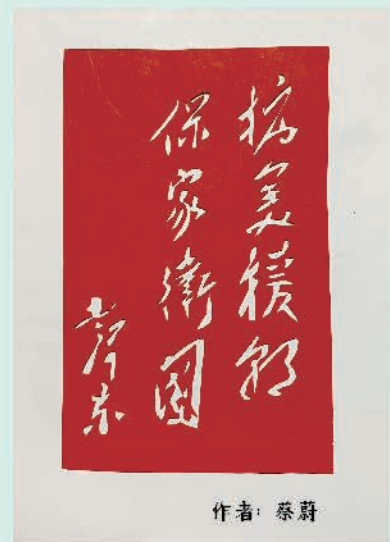 抗美援朝
保家衛國
毛泽东
作者：蔡蔚